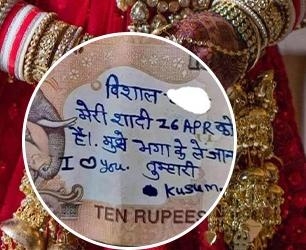 विशाल
मेरी शादी 26 APR को
है।. मुझे भगा के ले जाना
I ♡ you. तुम्हारी
Kusum.
TEN RUPEES